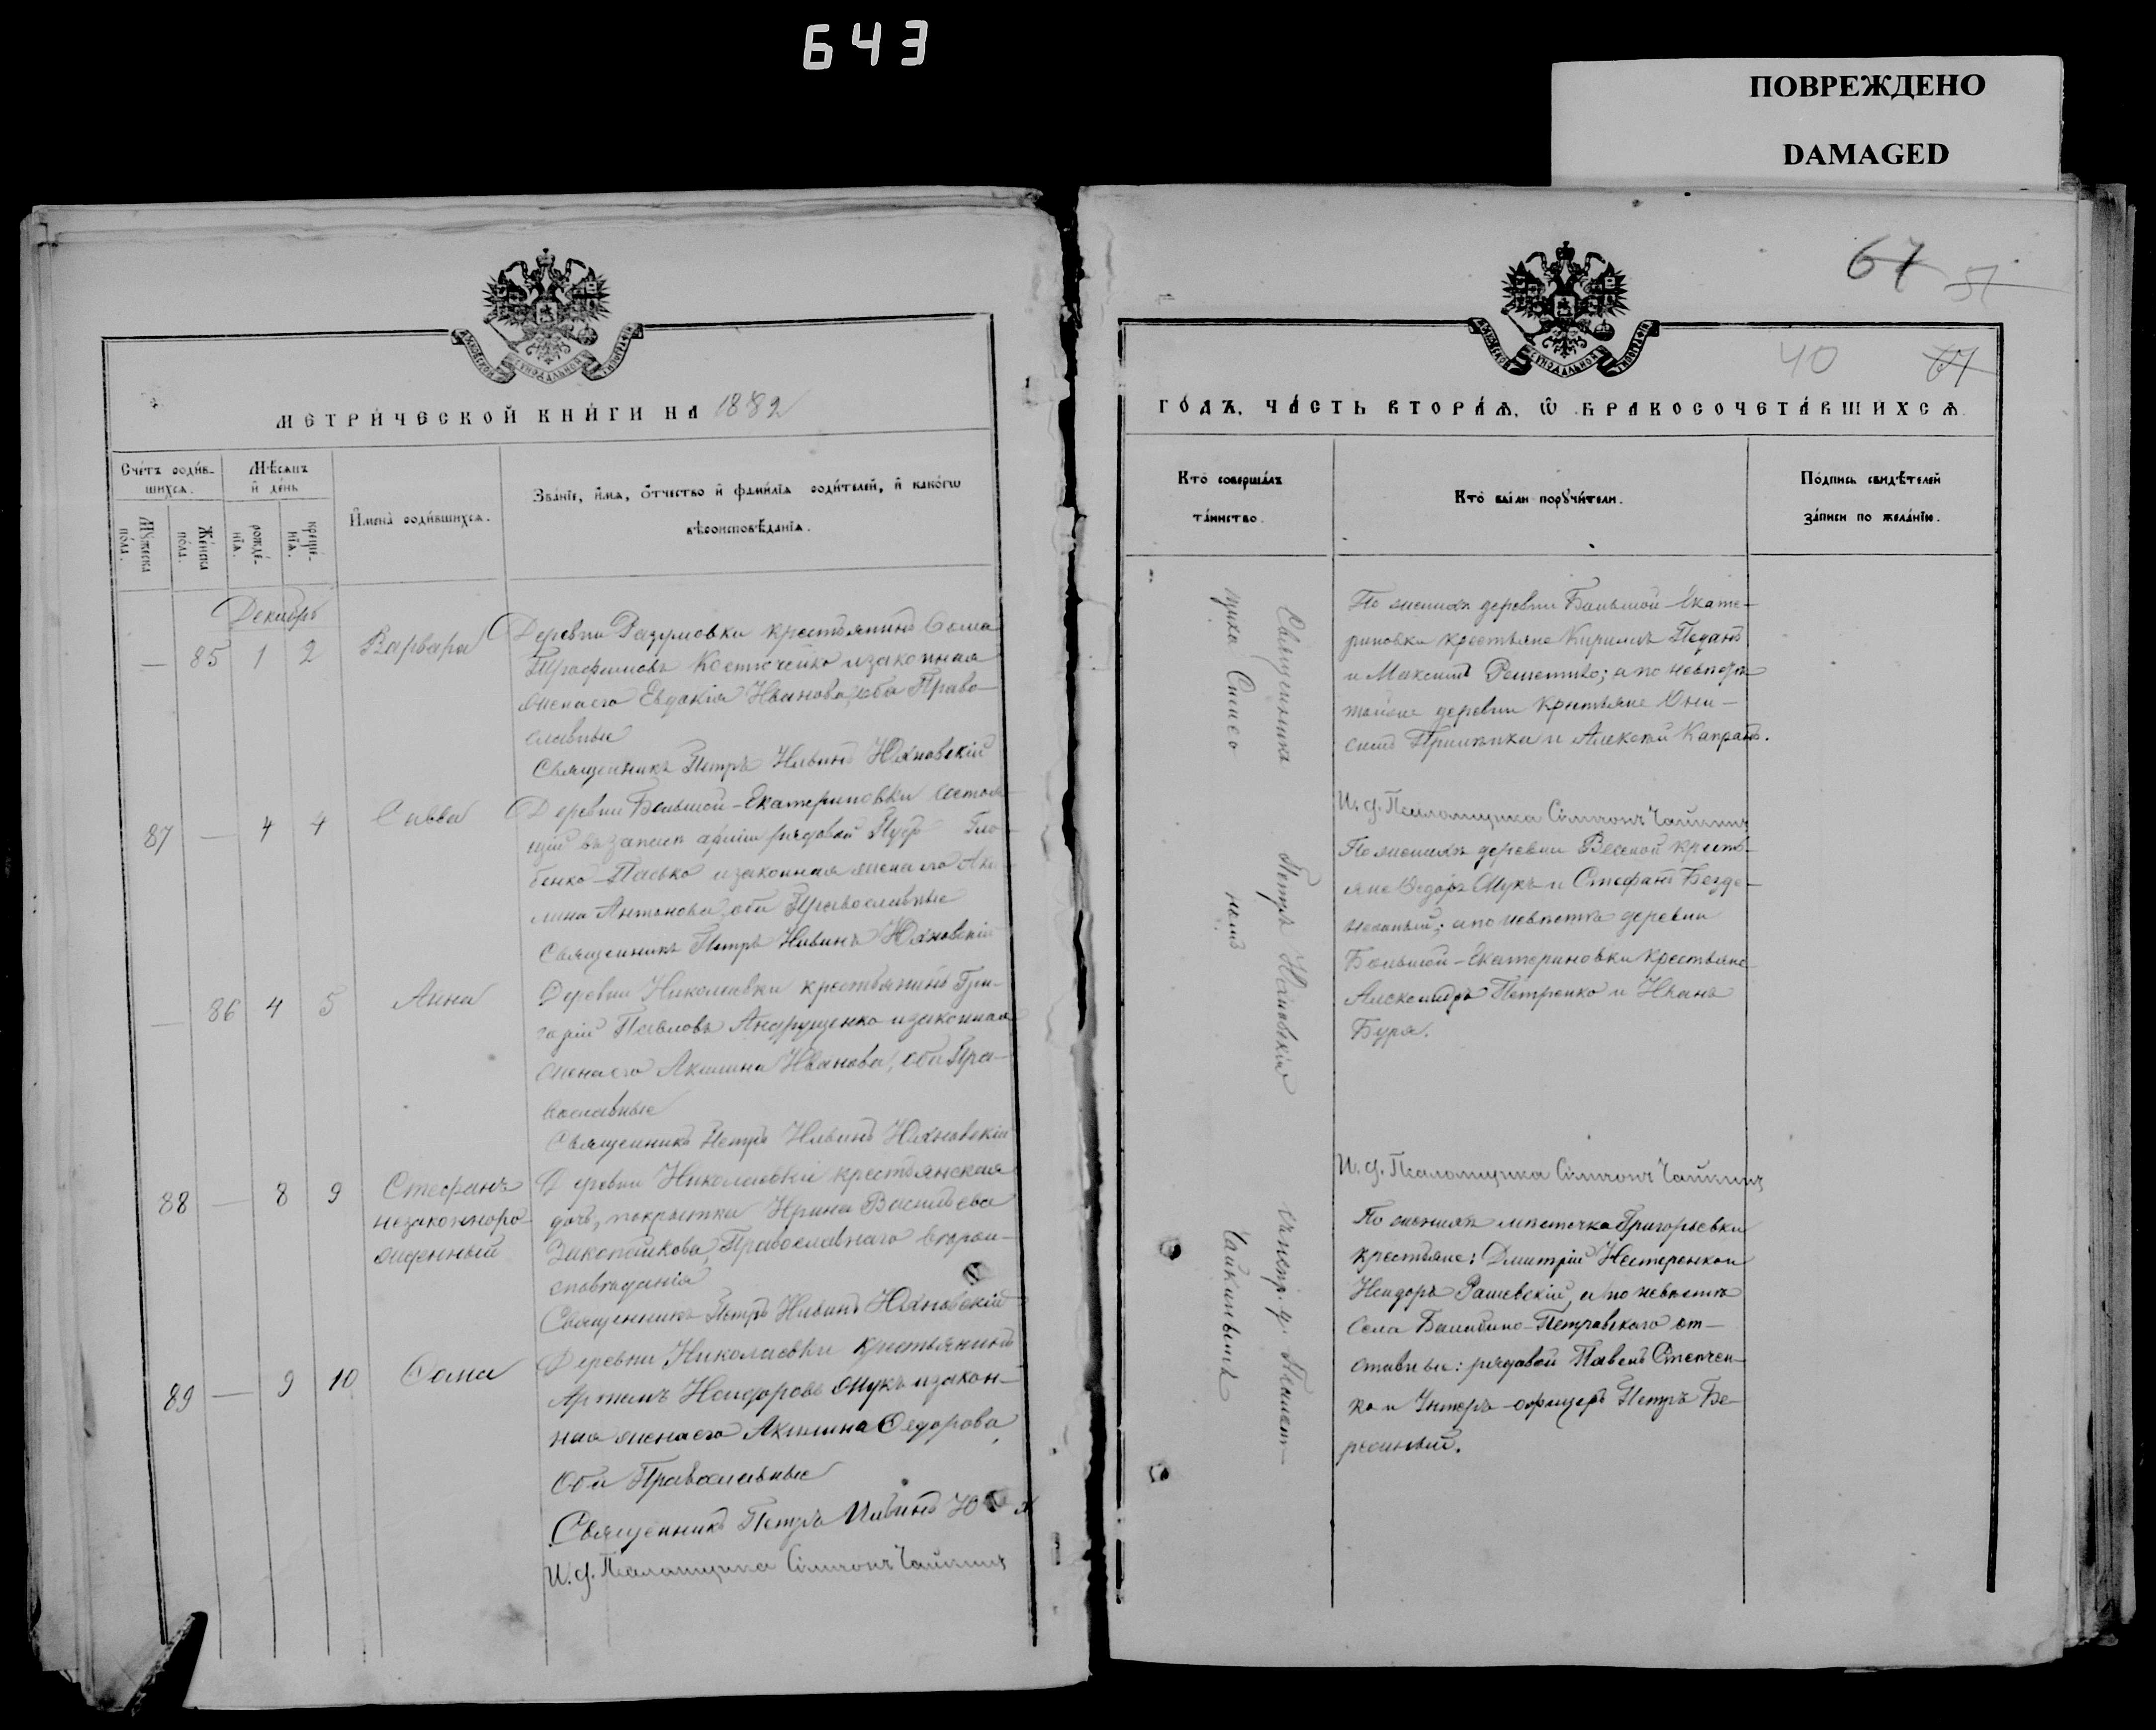 643
ПОВРЕЖДЕНО
DAMAGED
МЕТРИ́ЧЕСКОЙ КНИ́ГИ НА 1882
Сче́тъ роди́в-
шихся.
Мѣ́сяцъ
и҆ де́нь
Мꙋ́жеска
по́ла.
Же́нска
по́ла.
рожде́-
нїѧ.
креще́-
нїѧ.
И҆мена̀ роди́вшихсѧ.
Зва́нїе, и҆́мѧ, ѻ҆́тчество и҆ фами́лїѧ роди́телей, и҆ како́гѡ
вѣроисповѣ́данїѧ.
Декабрь
— 85 1 2 Варвара
Деревни Разумовки крестьянинъ Ѳома
Трофимовъ Костюченко и законная
жена его Евдокія Иванова, оба Право-
славные
Священникъ Петръ Ильинъ Юхновскій
87 — 4 4 Савва
Деревни Большой-Екатериновки Состоя-
щій въ запасѣ арміи рядовой
бенко-Пасько и законная жена его Аки-
лина Антонова, оба Православные
Священникъ Петръ Ильинъ Юхновскій
— 86 4 5 Анна
Деревни Николаевки крестьянинъ Гри-
горій Павловъ Андрущенко и законная
жена его Акилина Иванова, оба Пра-
вославные
Священникъ Петръ Ильинъ Юхновскій
88 — 8 9 Стефанъ
незаконноро-
жденный
Деревни Николаевки крестьянская
дочь, покрытка Ирина Васильева
Православнаго вѣрои-
сповѣданія
Священникъ Петръ Ильинъ Юхновскій
89 — 9 10 Ѳома
Деревни Николаевки крестьянинъ
Артемъ Исидоровъ Жукъ и закон-
ная жена его Акилина Ѳедорова,
Оба Православные
Священникъ Петръ Ильинъ Ю
И.д. Псаломщика Сѵмеонъ Чайкинъ
67 51
40 67
ГО́ДЪ, ЧА́СТЬ ВТОРА́Ѧ, Ѡ҆ БРАКОСОЧЕТА́ВШИХСѦ
Кто̀ соверша́лъ
та́инство.
Кто̀ бы́ли порꙋчи́тели.
По́дпись свидѣ́телей
за́писи по жела́нїю.
Священника Петръ Юхновскій
Чайкинымъ
По женихѣ деревни Большой-Екате-
риновки крестьяне Кирилъ
и Максимъ Решетило; а по невѣстѣ
тойже деревни Крестьяне Они-
симъ и Алексѣй Капранъ.
И.д. Псаломщика Сѵмеонъ Чайкинъ
По женихѣ деревни Веселой кресть-
яне Ѳедоръ Жукъ и Стефанъ Безде-
нежный; а по невѣстѣ деревни
Большой-Екатериновки Крестьяне
Александръ Петренко и Иванъ
Буря.
И.д. Псаломщика Сѵмеонъ Чайкинъ
По женихѣ мѣстечка Григорьевки
крестьяне: Дмитрій Нестеренко и
Исидоръ Рашевскій, а по невѣстѣ
Села Балабино-Петровскаго от-
ставные: рядовой Павелъ Степчен-
ко и Унтеръ-офицеръ Петръ Бе-
резный.